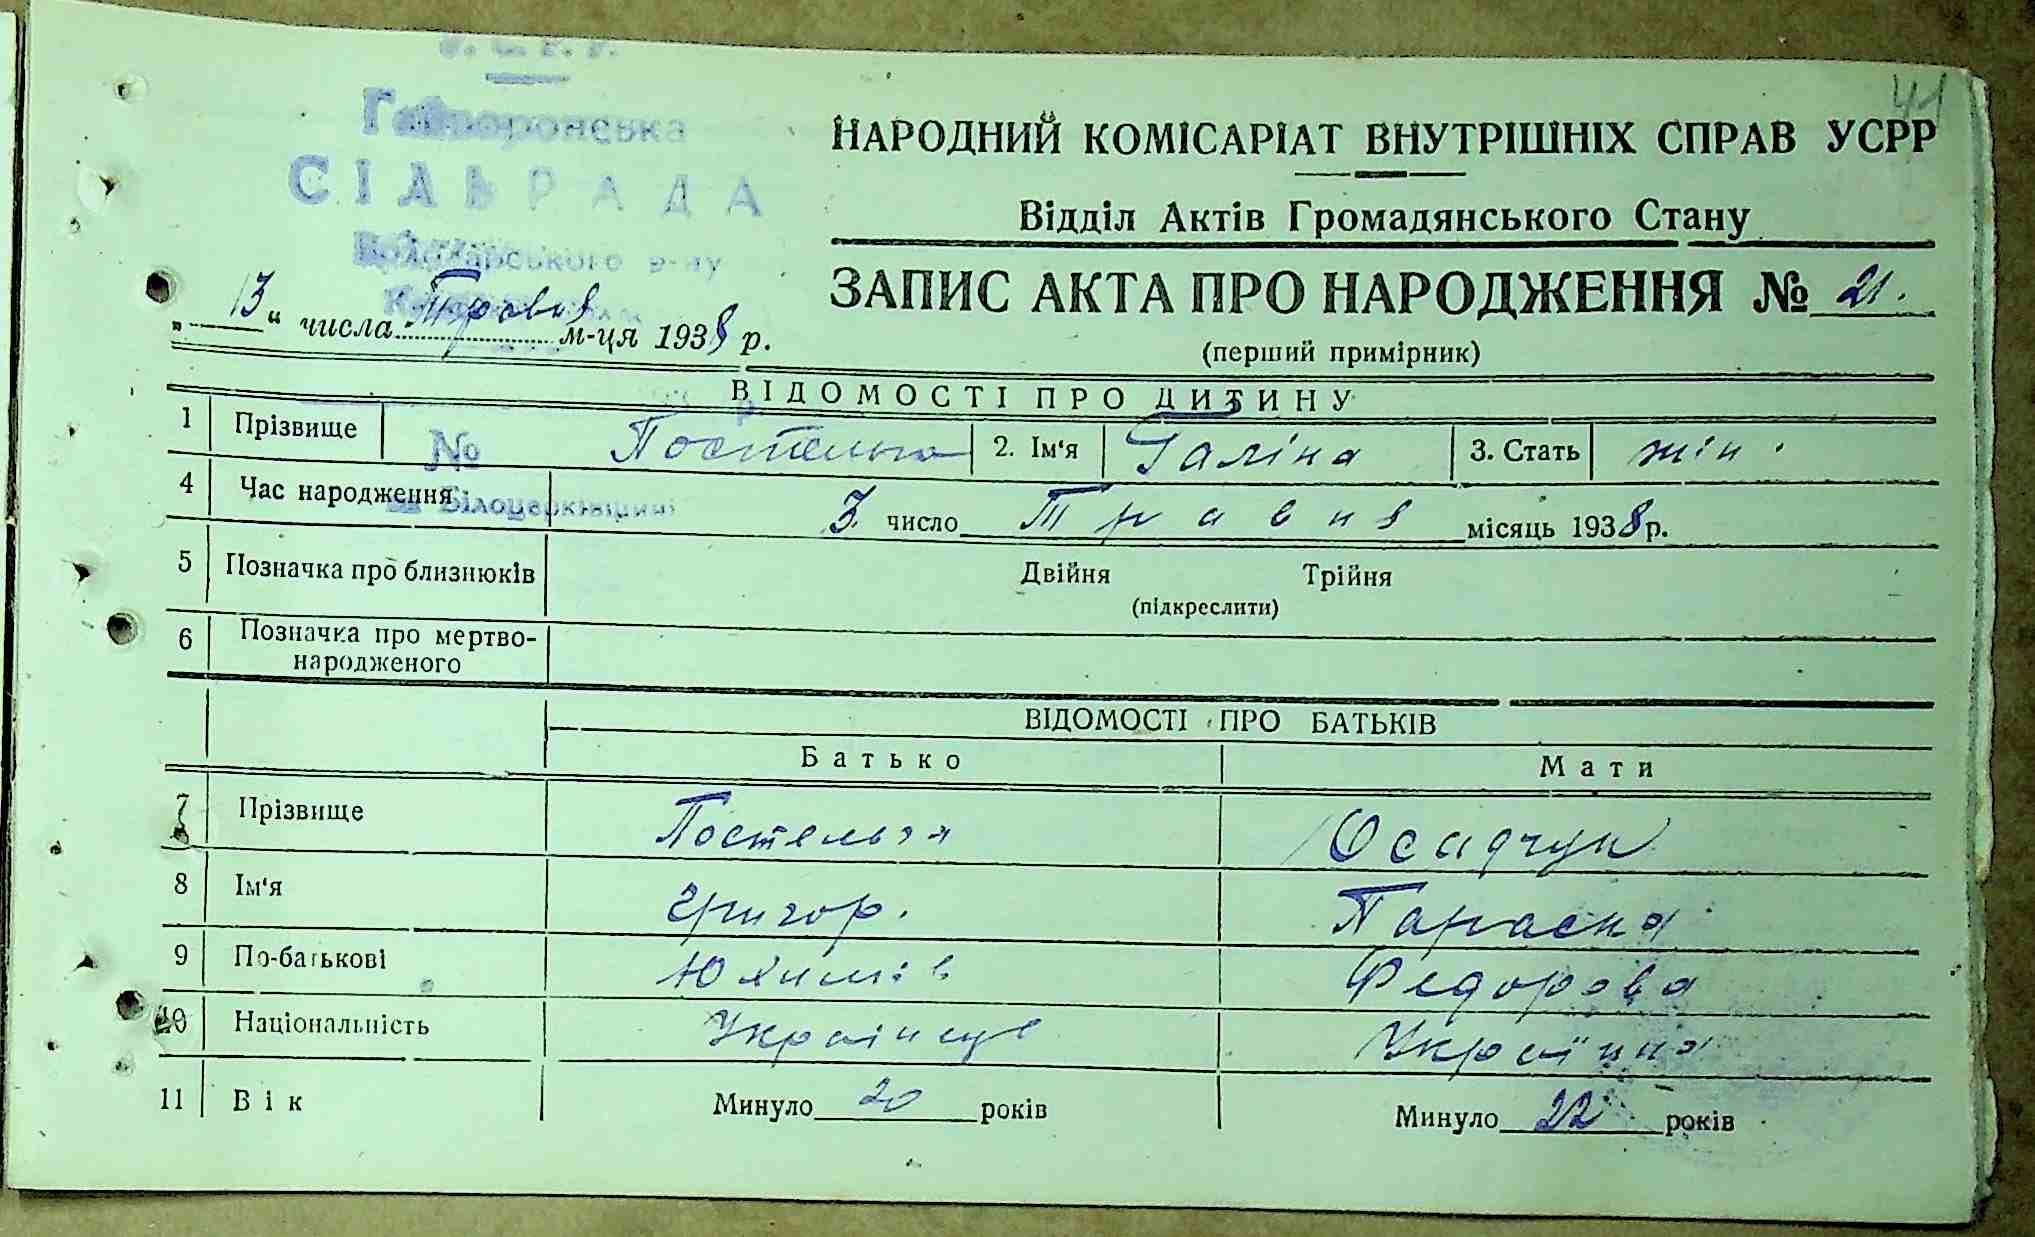 У. С. Р. Р.
Гайворонська
СІЛЬРАДА
Володарського р-ну
41
НАРОДНИЙ КОМІСАРІАТ ВНУТРІШНІХ СПРАВ УСРР
Відділ Актів Громадянського Стану
ЗАПИС АКТА ПРО НАРОДЖЕННЯ № 21.
(перший примірник)
„ 13 “ числа Травня м-ця 1938 р.
ВІДОМОСТІ ПРО ДИТИНУ
1 Прізвище № 2. Ім‘я Галіна 3. Стать жін.
4 Час народження 3 число Травня місяць 1938 р.
Білоцерківщині
5 Позначка про близнюків Двійня Трійня
(підкреслити)
6 Позначка про мертво-
народженого
ВІДОМОСТІ ПРО БАТЬКІВ
Батько Мати
7 Прізвище Осадчук
8 Ім‘я Григор. Параска
9 По-батькові Юхимів Федорова
10 Національність Українець Українка
11 Вік Минуло 20 років Минуло 22 років